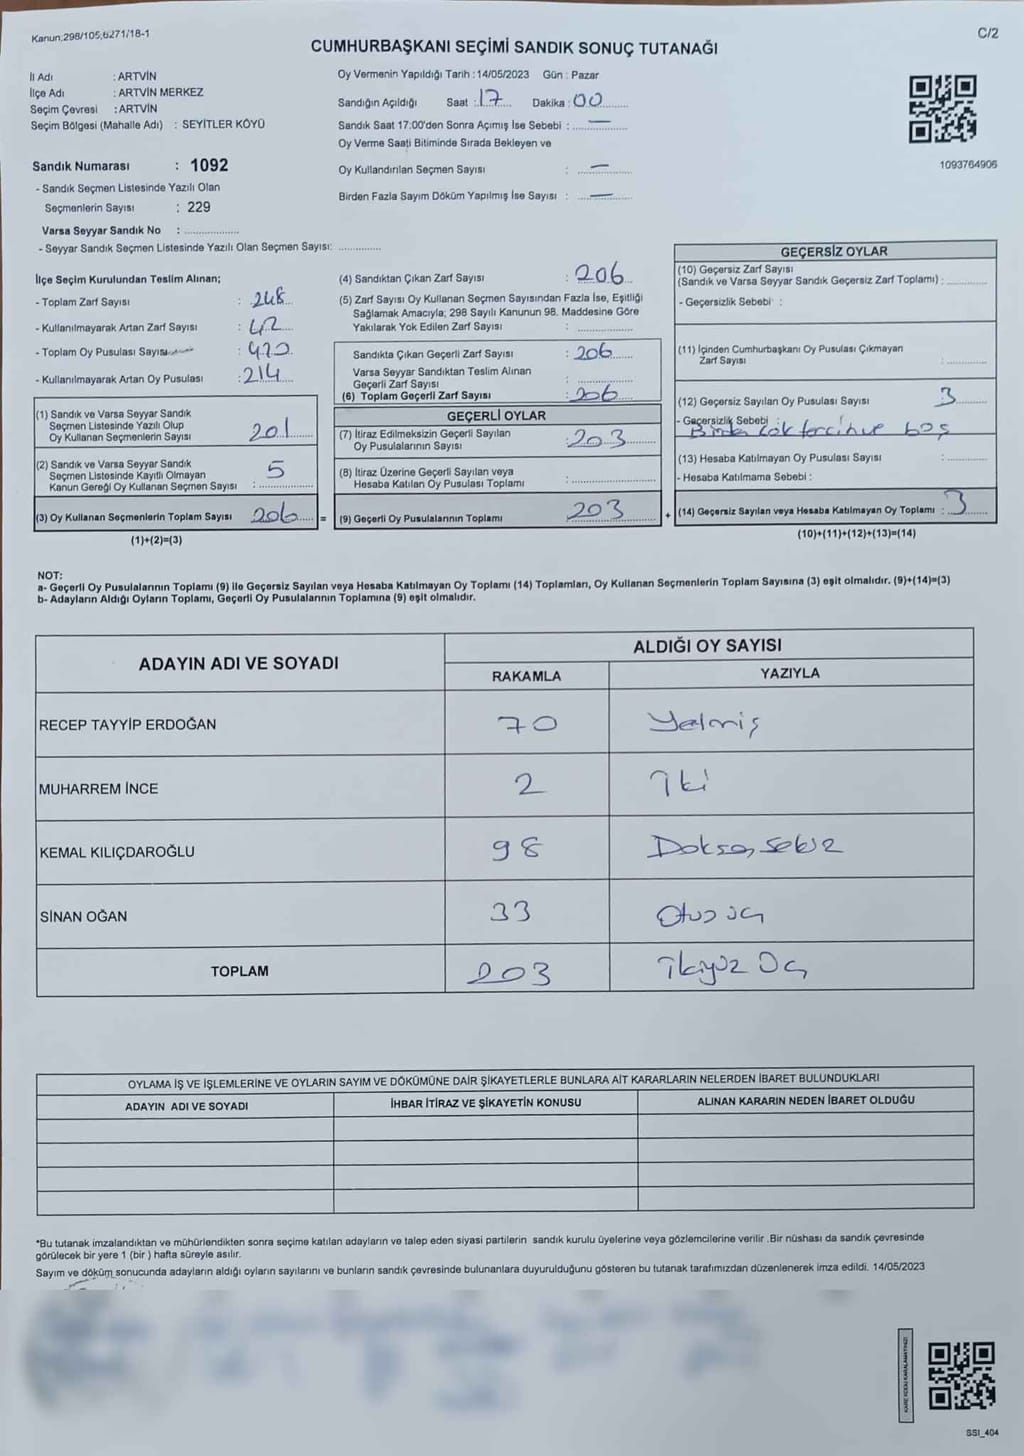 Kanun;298/105;6271/18-1
C/2
CUMHURBAŞKANI SEÇİMİ SANDIK SONUÇ TUTANAĞI
İl Adı : ARTVİN
İlçe Adı : ARTVİN MERKEZ
Seçim Çevresi : ARTVİN
Seçim Bölgesi (Mahalle Adı) : SEYİTLER KÖYÜ
Sandık Numarası : 1092
- Sandık Seçmen Listesinde Yazılı Olan
Seçmenlerin Sayısı : 229
Varsa Seyyar Sandık No : ..................
- Seyyar Sandık Seçmen Listesinde Yazılı Olan Seçmen Sayısı: ..............
Oy Vermenin Yapıldığı Tarih : 14/05/2023 Gün : Pazar
Sandığın Açıldığı Saat : 17 Dakika : 00
Sandık Saat 17:00'den Sonra Açımış İse Sebebi : —
Oy Verme Saati Bitiminde Sırada Bekleyen ve
Oy Kullandırılan Seçmen Sayısı : —
Birden Fazla Sayım Döküm Yapılmış İse Sayısı : —
1093764906
İlçe Seçim Kurulundan Teslim Alınan;
- Toplam Zarf Sayısı : 248
- Kullanılmayarak Artan Zarf Sayısı : 42
- Toplam Oy Pusulası Sayısı : 420
- Kullanılmayarak Artan Oy Pusulası : 214
(1) Sandık ve Varsa Seyyar Sandık
Seçmen Listesinde Yazılı Olup
Oy Kullanan Seçmenlerin Sayısı 201
(2) Sandık ve Varsa Seyyar Sandık
Seçmen Listesinde Kayıtlı Olmayan
Kanun Gereği Oy Kullanan Seçmen Sayısı : 5
(3) Oy Kullanan Seçmenlerin Toplam Sayısı 206 =
(1)+(2)=(3)
(4) Sandıktan Çıkan Zarf Sayısı : 206
(5) Zarf Sayısı Oy Kullanan Seçmen Sayısından Fazla İse, Eşitliği
Sağlamak Amacıyla; 298 Sayılı Kanunun 98. Maddesine Göre
Yakılarak Yok Edilen Zarf Sayısı : ..................
Sandıkta Çıkan Geçerli Zarf Sayısı : 206
Varsa Seyyar Sandıktan Teslim Alınan
Geçerli Zarf Sayısı : ..................
(6) Toplam Geçerli Zarf Sayısı : 206
GEÇERLİ OYLAR
(7) İtiraz Edilmeksizin Geçerli Sayılan
Oy Pusulalarının Sayısı : 203
(8) İtiraz Üzerine Geçerli Sayılan veya
Hesaba Katılan Oy Pusulası Toplamı : ..................
(9) Geçerli Oy Pusulalarının Toplamı 203 +
GEÇERSİZ OYLAR
(10) Geçersiz Zarf Sayısı
(Sandık ve Varsa Seyyar Sandık Geçersiz Zarf Toplamı) : ............
- Geçersizlik Sebebi :
(11) İçinden Cumhurbaşkanı Oy Pusulası Çıkmayan
Zarf Sayısı : ............
(12) Geçersiz Sayılan Oy Pusulası Sayısı : 3
- Geçersizlik Sebebi : Birden çok tercih ve boş
(13) Hesaba Katılmayan Oy Pusulası Sayısı : ............
- Hesaba Katılmama Sebebi :
(14) Geçersiz Sayılan veya Hesaba Katılmayan Oy Toplamı : 3
(10)+(11)+(12)+(13)=(14)
NOT:
a- Geçerli Oy Pusulalarının Toplamı (9) ile Geçersiz Sayılan veya Hesaba Katılmayan Oy Toplamı (14) Toplamları, Oy Kullanan Seçmenlerin Toplam Sayısına (3) eşit olmalıdır. (9)+(14)=(3)
b- Adayların Aldığı Oyların Toplamı, Geçerli Oy Pusulalarının Toplamına (9) eşit olmalıdır.
ADAYIN ADI VE SOYADI ALDIĞI OY SAYISI
RAKAMLA YAZIYLA
RECEP TAYYİP ERDOĞAN 70 Yetmiş
MUHARREM İNCE 2 İki
KEMAL KILIÇDAROĞLU 98 Doksan sekiz
SİNAN OĞAN 33 Otuz üç
TOPLAM 203 İkiyüz Üç
OYLAMA İŞ VE İŞLEMLERİNE VE OYLARIN SAYIM VE DÖKÜMÜNE DAİR ŞİKAYETLERLE BUNLARA AİT KARARLARIN NELERDEN İBARET BULUNDUKLARI
ADAYIN ADI VE SOYADI İHBAR İTİRAZ VE ŞİKAYETİN KONUSU ALINAN KARARIN NEDEN İBARET OLDUĞU
*Bu tutanak imzalandıktan ve mühürlendikten sonra seçime katılan adayların ve talep eden siyasi partilerin sandık kurulu üyelerine veya gözlemcilerine verilir .Bir nüshası da sandık çevresinde
görülecek bir yere 1 (bir ) hafta süreyle asılır.
Sayım ve döküm sonucunda adayların aldığı oyların sayılarını ve bunların sandık çevresinde bulunanlara duyurulduğunu gösteren bu tutanak tarafımızdan düzenlenerek imza edildi. 14/05/2023
KARE KODU KARALAMAYINIZ!
SSI_404